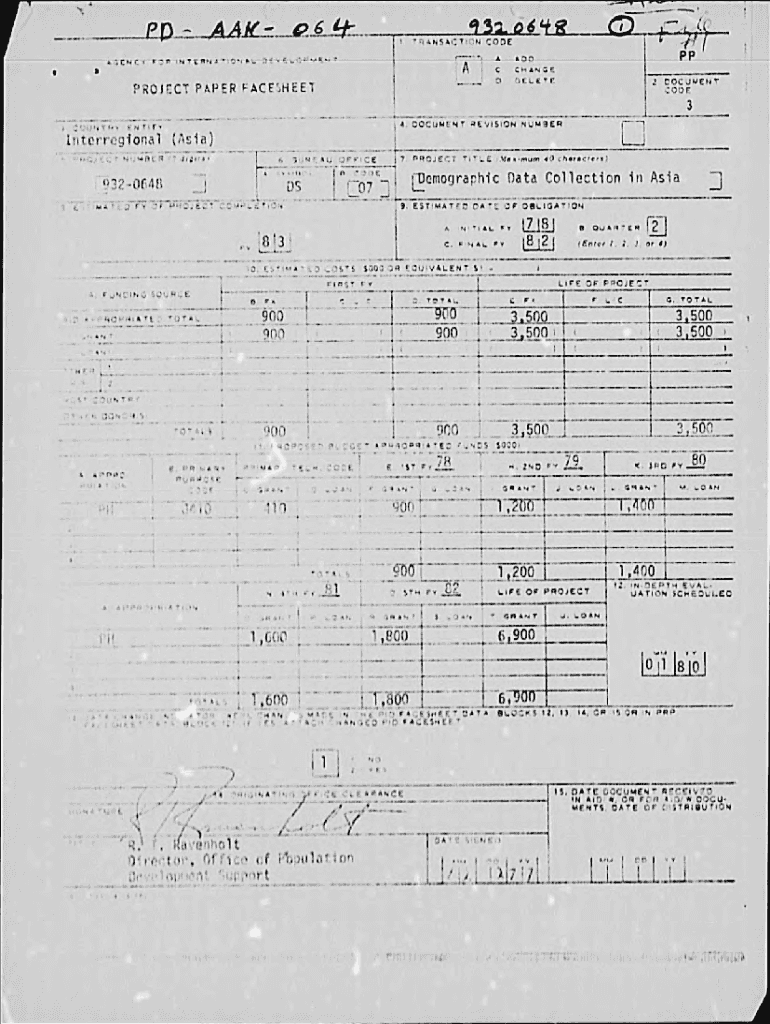 PD - AAK - 064 9320648 1
AGENCY FOR INTERNATIONAL DEVELOPMENT
PROJECT PAPER FACESHEET
1. TRANSACTION CODE
A
A ADD
C CHANGE
D DELETE
PP
2. DOCUMENT CODE
3
3. COUNTRY/ENTITY
Interregional (Asia)
4. DOCUMENT REVISION NUMBER
5. PROJECT NUMBER (7 digits)
932-0648
6. BUREAU/OFFICE
A. SYMBOL B. CODE
DS 07
7. PROJECT TITLE (Maximum 40 characters)
Demographic Data Collection in Asia
8. ESTIMATED FY OF PROJECT COMPLETION
FY 83
9. ESTIMATED DATE OF OBLIGATION
A. INITIAL FY 78 B. QUARTER 2
C. FINAL FY 82 (Enter 1, 2, 3, or 4)
10. ESTIMATED COSTS $000 OR EQUIVALENT $1 -
A. FUNDING SOURCE FIRST FY LIFE OF PROJECT
B. FX C. L/C D. TOTAL E. FX F. L/C G. TOTAL
AID APPROPRIATED TOTAL 900 900 3,500 3,500
GRANT 900 900 3,500 3,500
LOAN
OTHER 1.
U.S. 2.
HOST COUNTRY
OTHER DONOR(S)
TOTALS 900 900 3,500 3,500
11. PROPOSED BUDGET APPROPRIATED FUNDS $000
A. APPROPRIATION B. PRIMARY PURPOSE CODE PRIMARY TECH. CODE E. 1ST FY 78 H. 2ND FY 79 K. 3RD FY 80
C. GRANT D. LOAN F. GRANT G. LOAN GRANT J. LOAN L. GRANT M. LOAN
PH 410 900 1,200 1,400
TOTALS 900 1,200 1,400
A. APPROPRIATION N. 4TH FY 81 O. 5TH FY 82 LIFE OF PROJECT
12. IN-DEPTH EVALUATION SCHEDULED
O. GRANT P. LOAN R. GRANT S. LOAN T. GRANT U. LOAN
PH 1,600 1,800 6,900
MM YY
01 80
TOTALS 1,600 1,800 6,900
13. DATA CHANGE INDICATOR. WERE CHANGES MADE IN THE PID FACESHEET DATA, BLOCKS 12, 13, 14, OR 15 OR IN PRP
FACESHEET DATA, BLOCK 12? IF YES, ATTACH CHANGED PID FACESHEET.
1
1 NO
2 YES
14. ORIGINATING OFFICE CLEARANCE
SIGNATURE
TITLE
R. T. Ravenholt
Director, Office of Population
Development Support
DATE SIGNED
MM DD YY
15. DATE DOCUMENT RECEIVED
IN AID/W, OR FOR AID/W DOCU-
MENTS, DATE OF DISTRIBUTION
MM DD YY